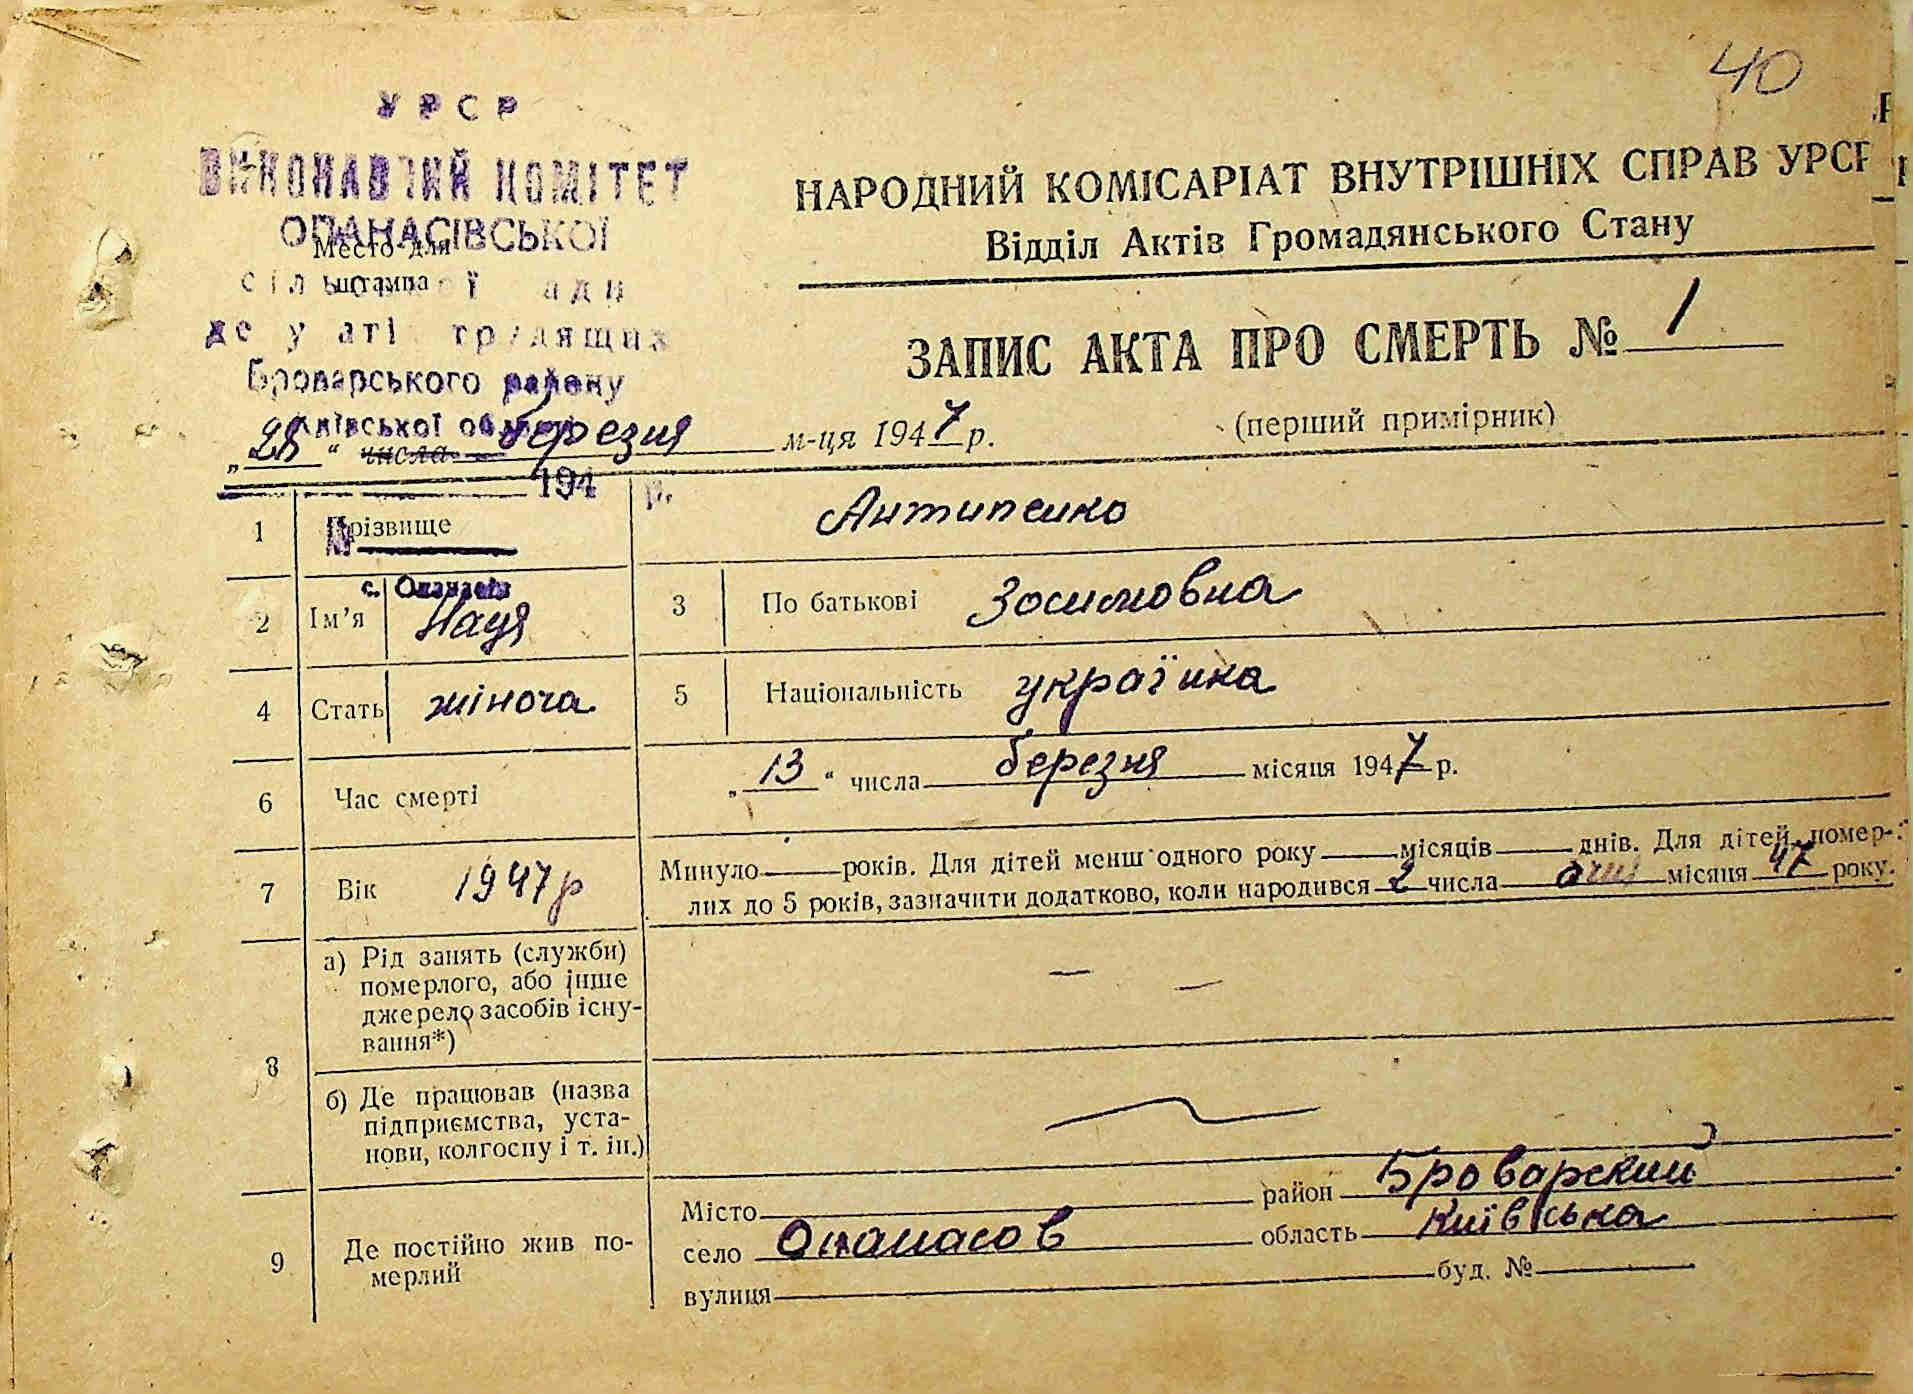 40
УРСР
ВИКОНАВЧИЙ КОМІТЕТ
ОПАНАСІВСЬКОЇ
Место для
штампа
сільської ради
депутатів трудящих
Броварського району
Київської області
НАРОДНИЙ КОМІСАРІАТ ВНУТРІШНІХ СПРАВ УРСР
Відділ Актів Громадянського Стану
ЗАПИС АКТА ПРО СМЕРТЬ № 1
(перший примірник)
„28“ числа березня м-ця 1947 р.
194 р.
1 Прізвище Антипенко
№
с. Опанасів
2 Ім'я Надя 3 По батькові Зосимовна
4 Стать жіноча 5 Національність українка
6 Час смерті „13“ числа березня місяця 1947 р.
7 Вік 1947 р Минуло років. Для дітей менш одного року місяців днів. Для дітей, помер-
лих до 5 років, зазначити додатково, коли народився 2 числа місяця 47 року.
8 а) Рід занять (служби)
померлого, або інше
джерело засобів існу-
вання*) — —
б) Де працював (назва
підприємства, уста-
нови, колгоспу і т. ін.)
9 Де постійно жив по-
мерлий
Місто район Броварский
село Опанасов область Київська
вулиця буд. №